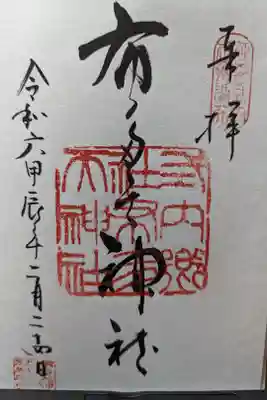 奉拝
布多天神社
式内郷
社布多
天神社
令和六甲辰年二月二日